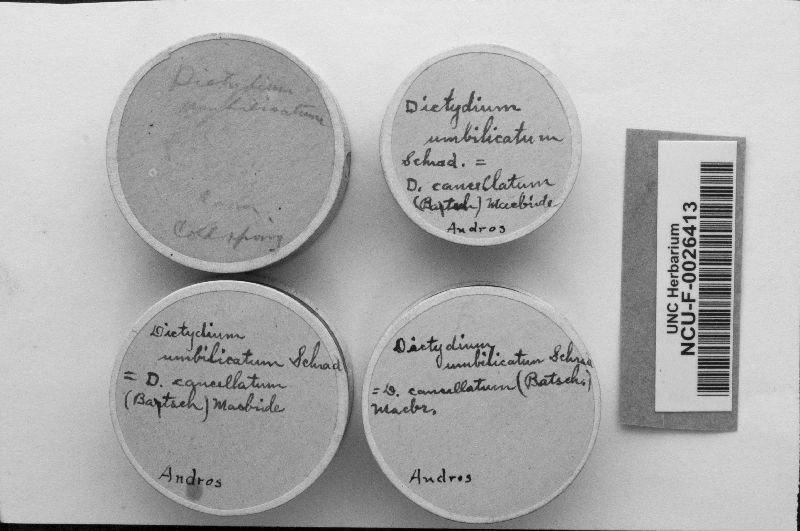 Dictydium
umbilicatum
Cold spring
Dictydium
umbilicatum
Schrad. =
D. cancellatum
(Bartsch) Macbride
Andros
Dictydium
umbilicatum Schrad
= D. cancellatum
(Bartsch) Macbride
Andros
Dictydium
umbilicatum Schrad
= D. cancellatum (Batsch.)
Macbr.
Andros
UNC Herbarium
NCU-F-0026413